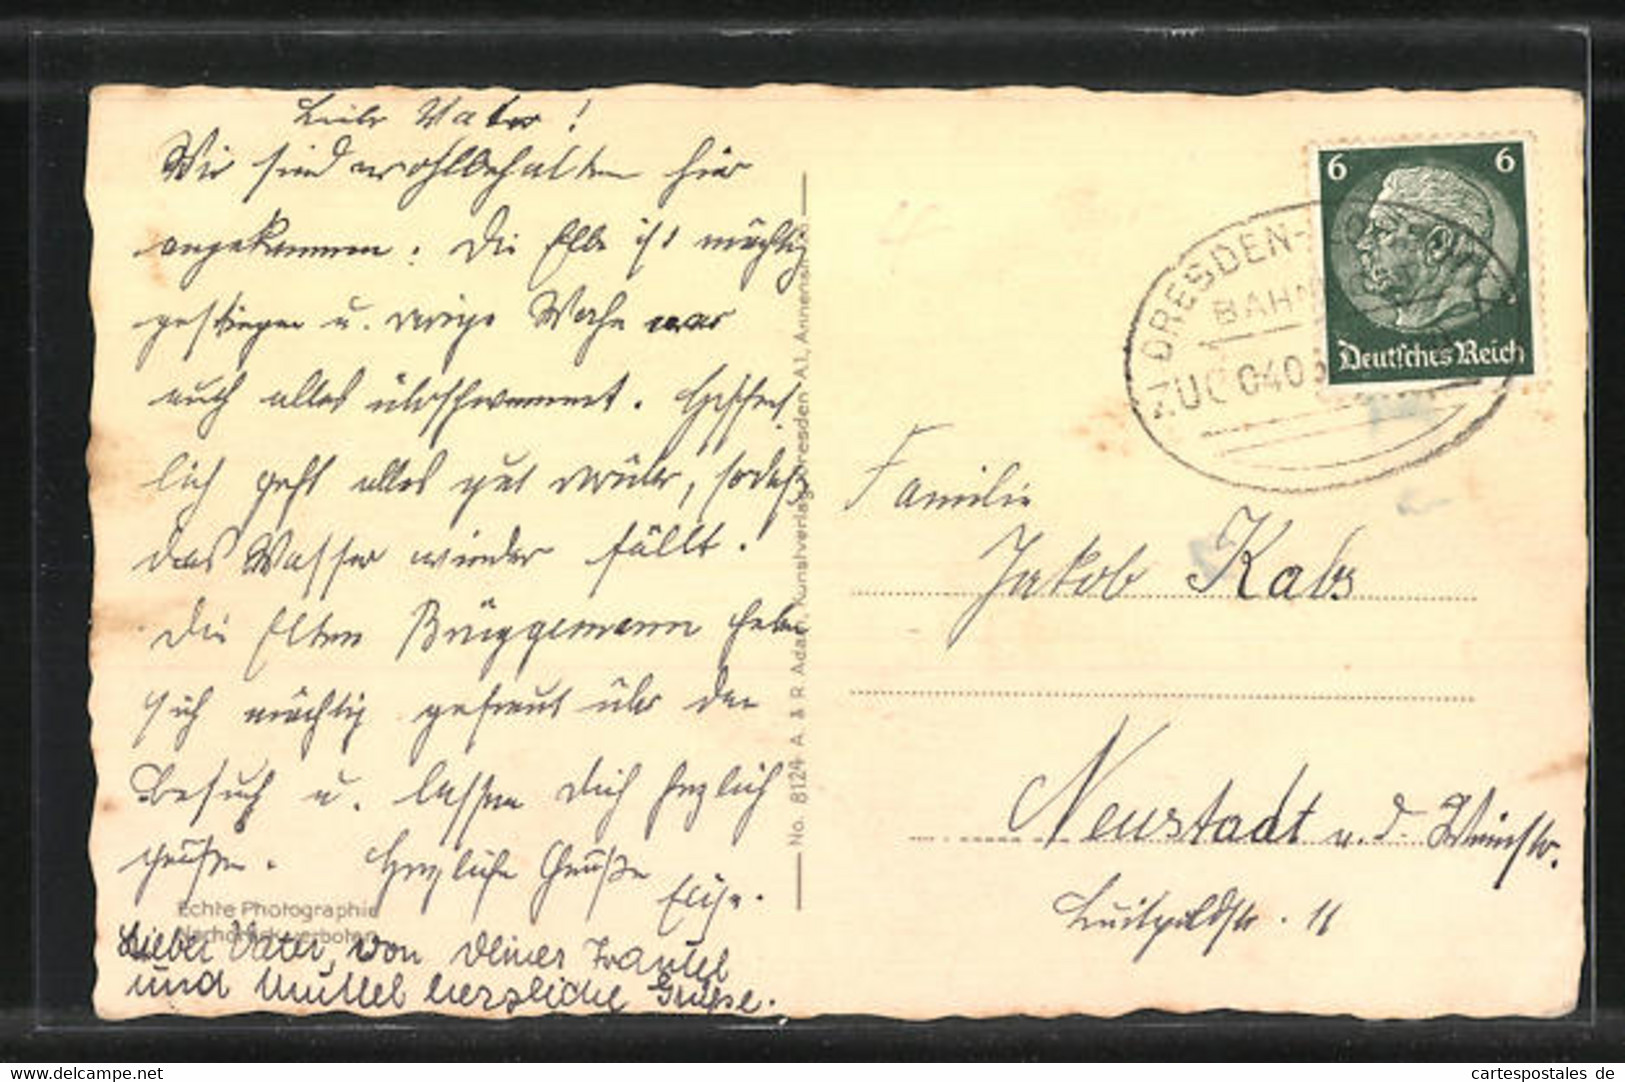 Liebr Vater!
Wir sind wohlbehalten hier
angekommen. Die Elbe ist mächtig
gestiegen u. vorige Woche war
auch alles überschwemmt.
lich geht alles gut vorüber, sodaß
das Wasser wieder fällt.
Die Eltern Brüggemann haben
sich mächtig gefreut über den
Besuch u. lassen Dich herzlich
grüßen. Herzliche Grüße
Elise.
Lieber Vater, von Deiner Trautel
und Muttel herzliche Grüße.
Echte Photographie
Nachdruck verboten
No. 8124 A. & R. Adam, Kunstverlag, Dresden-A.1, Annenstr.
6 6
Deutsches Reich
DRESDEN-
BAHN
ZUG 040
Familie
Jakob Kabs
Neustadt a. d. Weinstr.
Luitpoldstr. 11
www.delcampe.net
cartespostales de